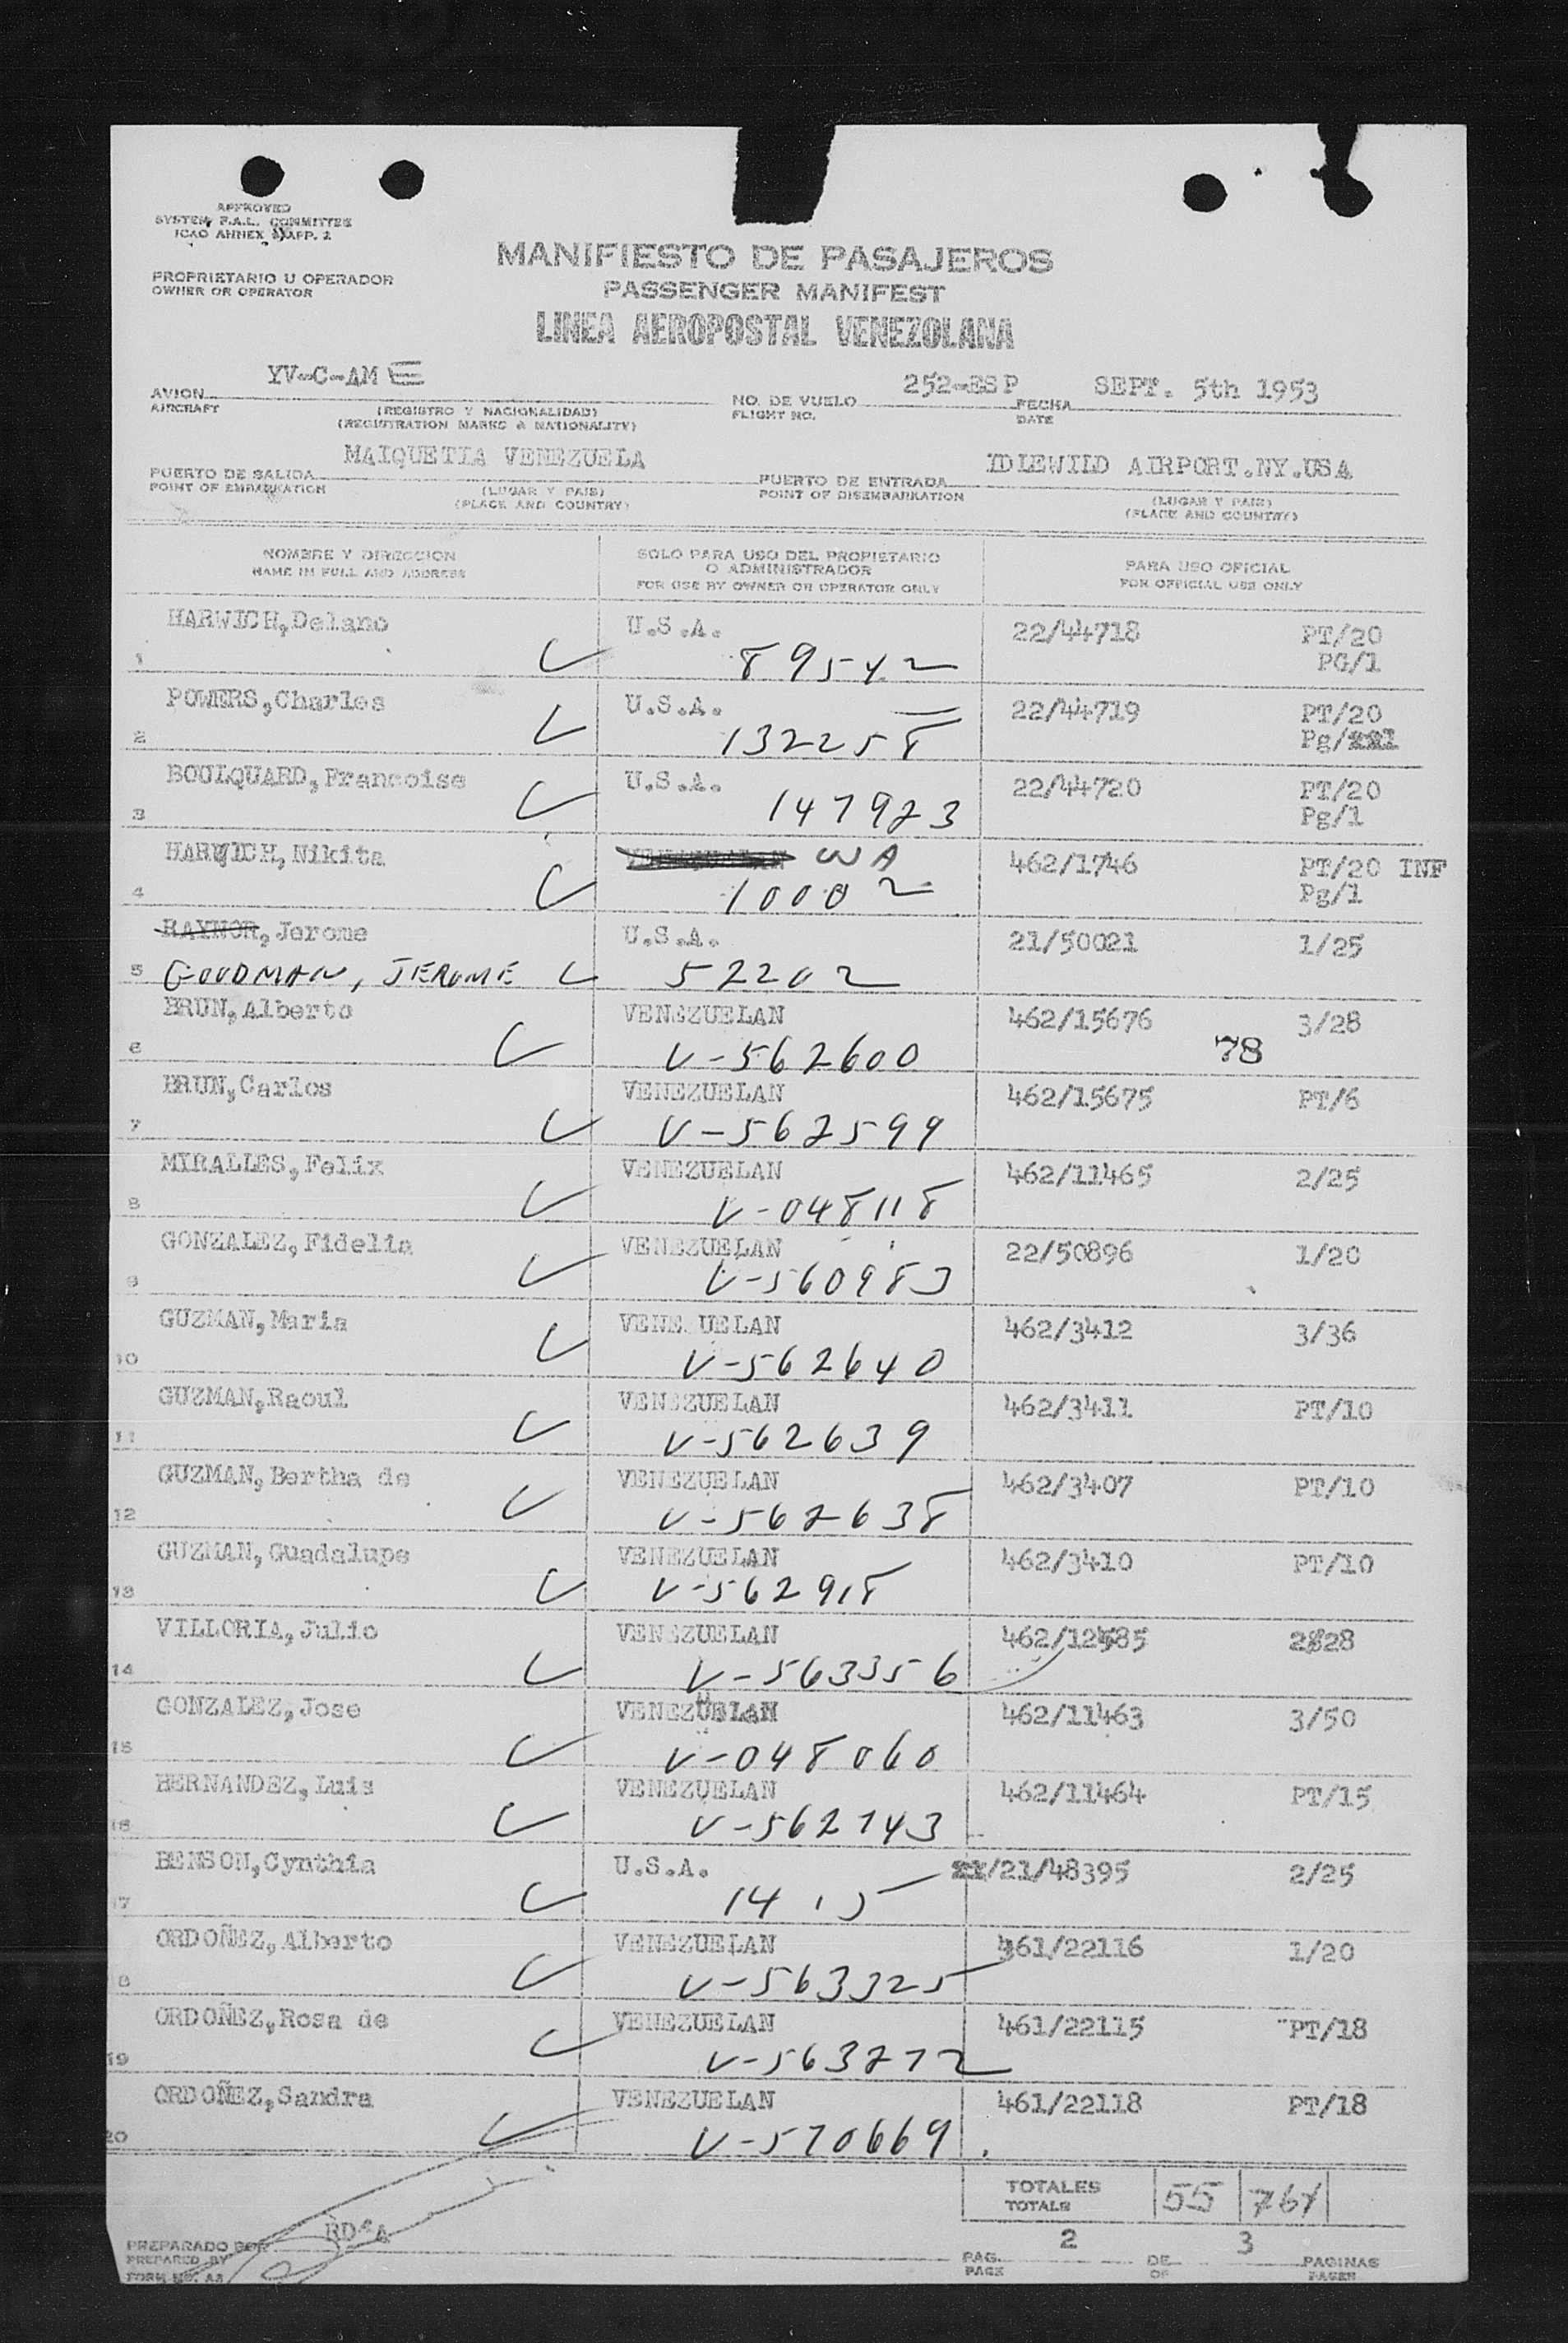 APPROVED
SYSTEM F.A.L. COMMITTEE
ICAO ANNEX 9 APP. 2
PROPRIETARIO U OPERADOR
OWNER OR OPERATOR
MANIFIESTO DE PASAJEROS
PASSENGER MANIFEST
LINEA AEROPOSTAL VENEZOLANA
AVION YV-C-AM E NO. DE VUELO 252-ESP FECHA SEPT. 5th 1953
AIRCRAFT (REGISTRO Y NACIONALIDAD) FLIGHT NO. DATE
(REGISTRATION MARKS & NATIONALITY)
PUERTO DE SALIDA MAIQUETIA VENEZUELA PUERTO DE ENTRADA IDLEWILD AIRPORT.NY.USA
POINT OF EMBARKATION (LUGAR Y PAIS) POINT OF DISEMBARKATION (LUGAR Y PAIS)
(PLACE AND COUNTRY) (PLACE AND COUNTRY)
NOMBRE Y DIRECCION SOLO PARA USO DEL PROPIETARIO PARA USO OFICIAL
NAME IN FULL AND ADDRESS O ADMINISTRADOR FOR OFFICIAL USE ONLY
FOR USE BY OWNER OR OPERATOR ONLY
HARWICH,Delano U.S.A. 22/44718 PT/20
1 89542 PG/1
POWERS,Charles U.S.A. 22/44719 PT/20
2 132258 Pg/
BOULQUARD,Francoise U.S.A. 22/44720 PT/20
3 147923 Pg/1
HARWICH,Nikita WA 462/1746 PT/20 INF
4 10002 Pg/1
RAYNOR,Jerome U.S.A. 21/50021 1/25
5 GOODMAN, JEROME 52202
BRUN,Alberto VENEZUELAN 462/15676 3/28
6 V-562600 78
BRUN,Carlos VENEZUELAN 462/15675 PT/6
7 V-562599
MIRALLES,Felix VENEZUELAN 462/11465 2/25
8 V-048118
GONZALEZ,Fidelia VENEZUELAN 22/50896 1/20
9 V-560983
GUZMAN,Maria VENE UELAN 462/3412 3/36
10 V-562640
GUZMAN,Raoul VENEZUELAN 462/3411 PT/10
11 V-562639
GUZMAN,Bertha de VENEZUELAN 462/3407 PT/10
12 V-562638
GUZMAN,Guadalupe VENEZUELAN 462/3410 PT/10
13 V-562918
VILLORIA,Julio VENEZUELAN
14 V-563356
GONZALEZ,Jose VENEZUELAN 462/11463 3/50
15 V-048060
HERNANDEZ,Luis VENEZUELAN 462/11464 PT/15
16 V-562743
BENSON,Cynthia U.S.A. /21/48395 2/25
17 1415
ORDOÑEZ,Alberto VENEZUELAN 461/22116 1/20
8 V-563325
ORDOÑEZ,Rosa de VENEZUELAN 461/22115 PT/18
19 V-563272
ORDOÑEZ,Sandra VENEZUELAN 461/22118 PT/18
20 V-570669
TOTALES 55
TOTALS
PREPARADO POR RD'A PAG. 2 DE 3 PAGINAS
PREPARED BY PAGE OF PAGES
FORM NO. A3